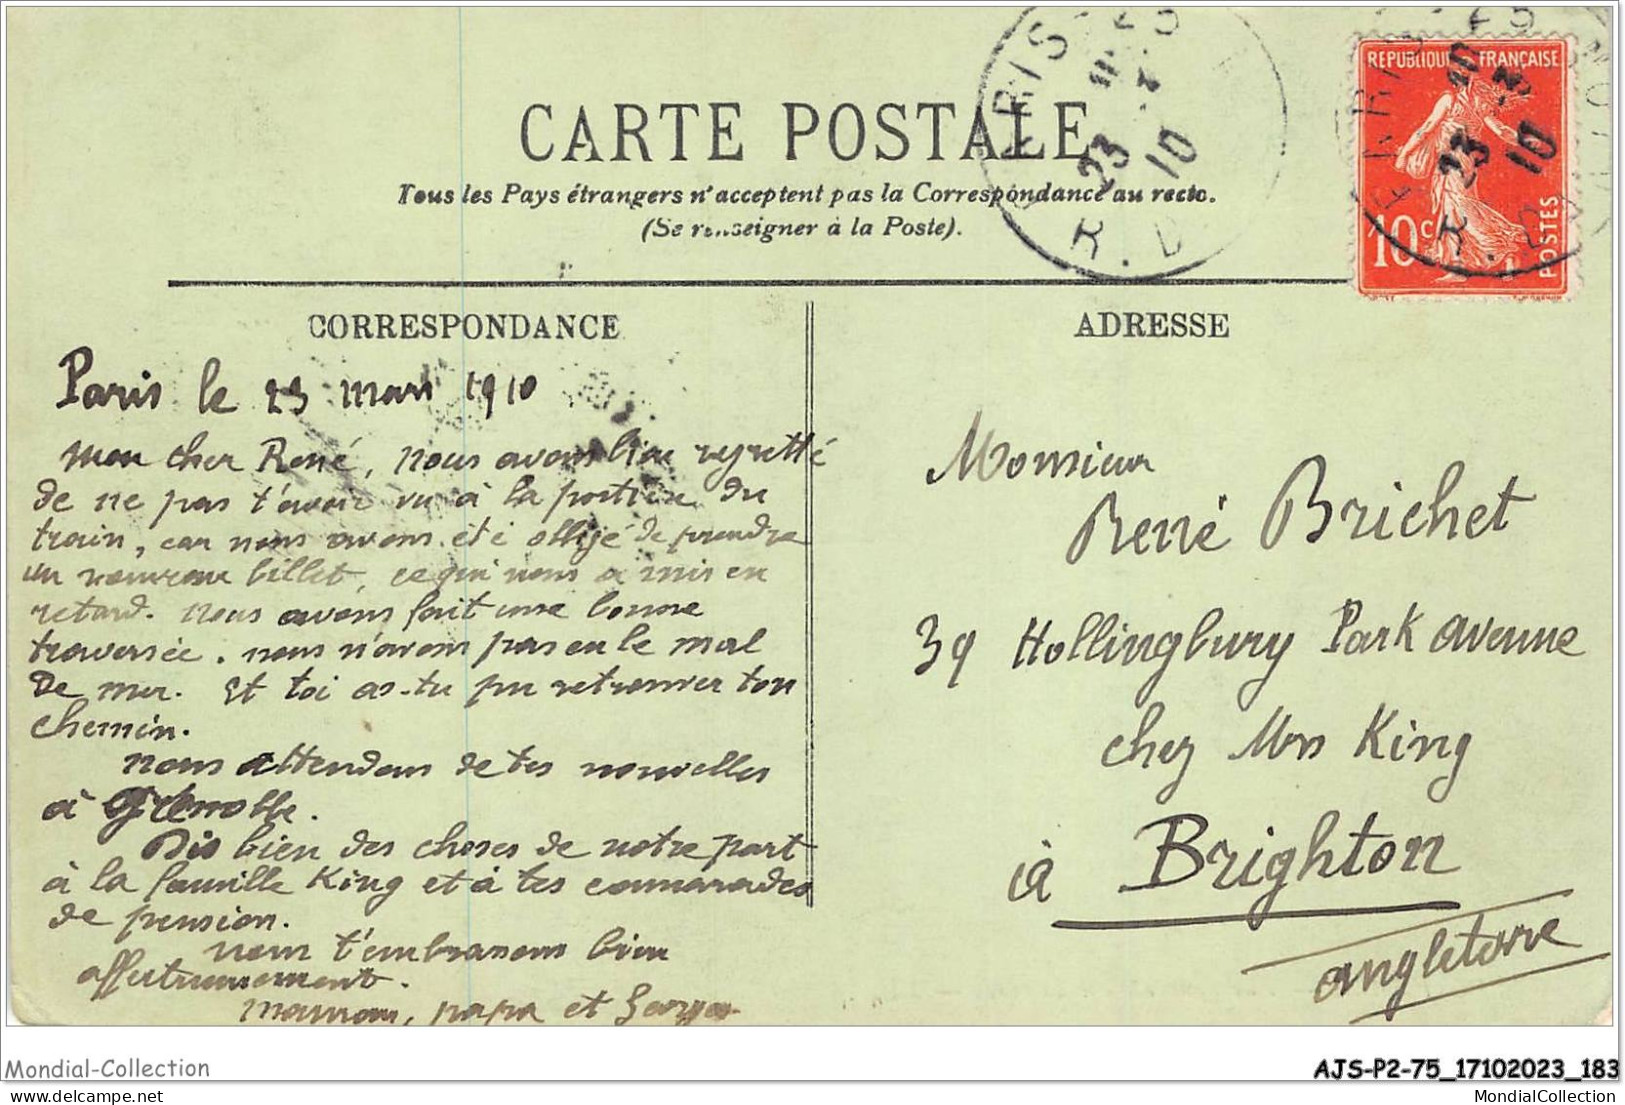 CARTE POSTALE
Tous les Pays étrangers n'acceptent pas la Correspondance au recto.
(Se renseigner à la Poste).
PARIS
23 - 3
10
R. D
REPUBLIQUE FRANÇAISE
10c
POSTES
CORRESPONDANCE
Paris le 23 mars 1910
Mon cher René, nous avons bien regretté
de ne pas t'avoir vu à la portière du
train, car nous avons été obligé de prendre
un nouveau billet, ce qui nous a mis en
retard. Nous avons fait une bonne
traversée. nous n'avons pas eu le mal
de mer. Et toi as-tu pu retrouver ton
chemin.
Nous attendons de tes nouvelles
à Grenoble.
Dis bien des choses de notre part
à la famille King et à tes camarades
de pension.
Nous t'embrassons bien
affectueusement.
maman, papa et Georges
ADRESSE
Monsieur
René Brichet
39 Hollingbury Park avenue
chez Mrs King
à Brighton
Angleterre
Mondial-Collection
AJS-P2-75_17102023_183
www.mondialcollection.com
MondialCollection